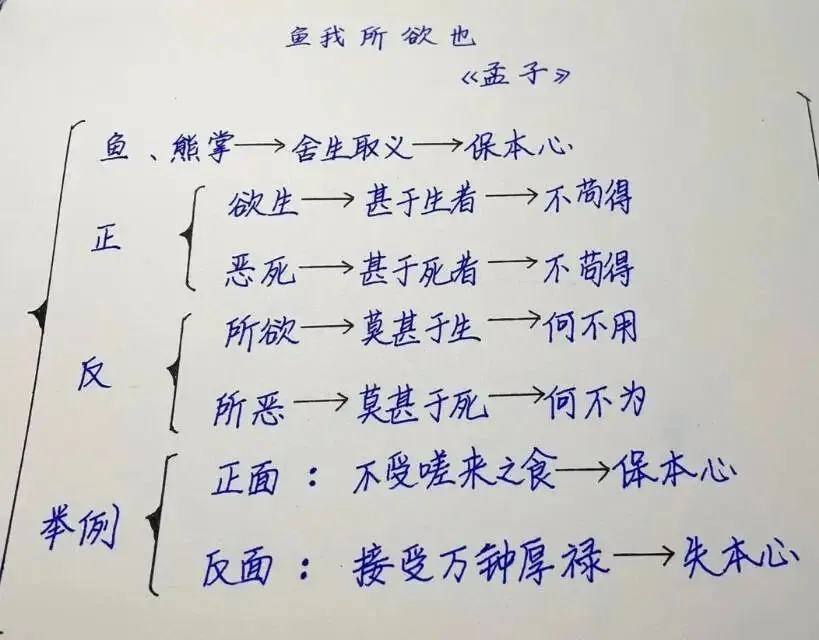 鱼我所欲也
《孟子》
鱼、熊掌→舍生取义→保本心
正
欲生→甚于生者→不苟得
恶死→甚于死者→不苟得
反
所欲→莫甚于生→何不用
所恶→莫甚于死→何不为
举例
正面：不受嗟来之食→保本心
反面：接受万钟厚禄→失本心